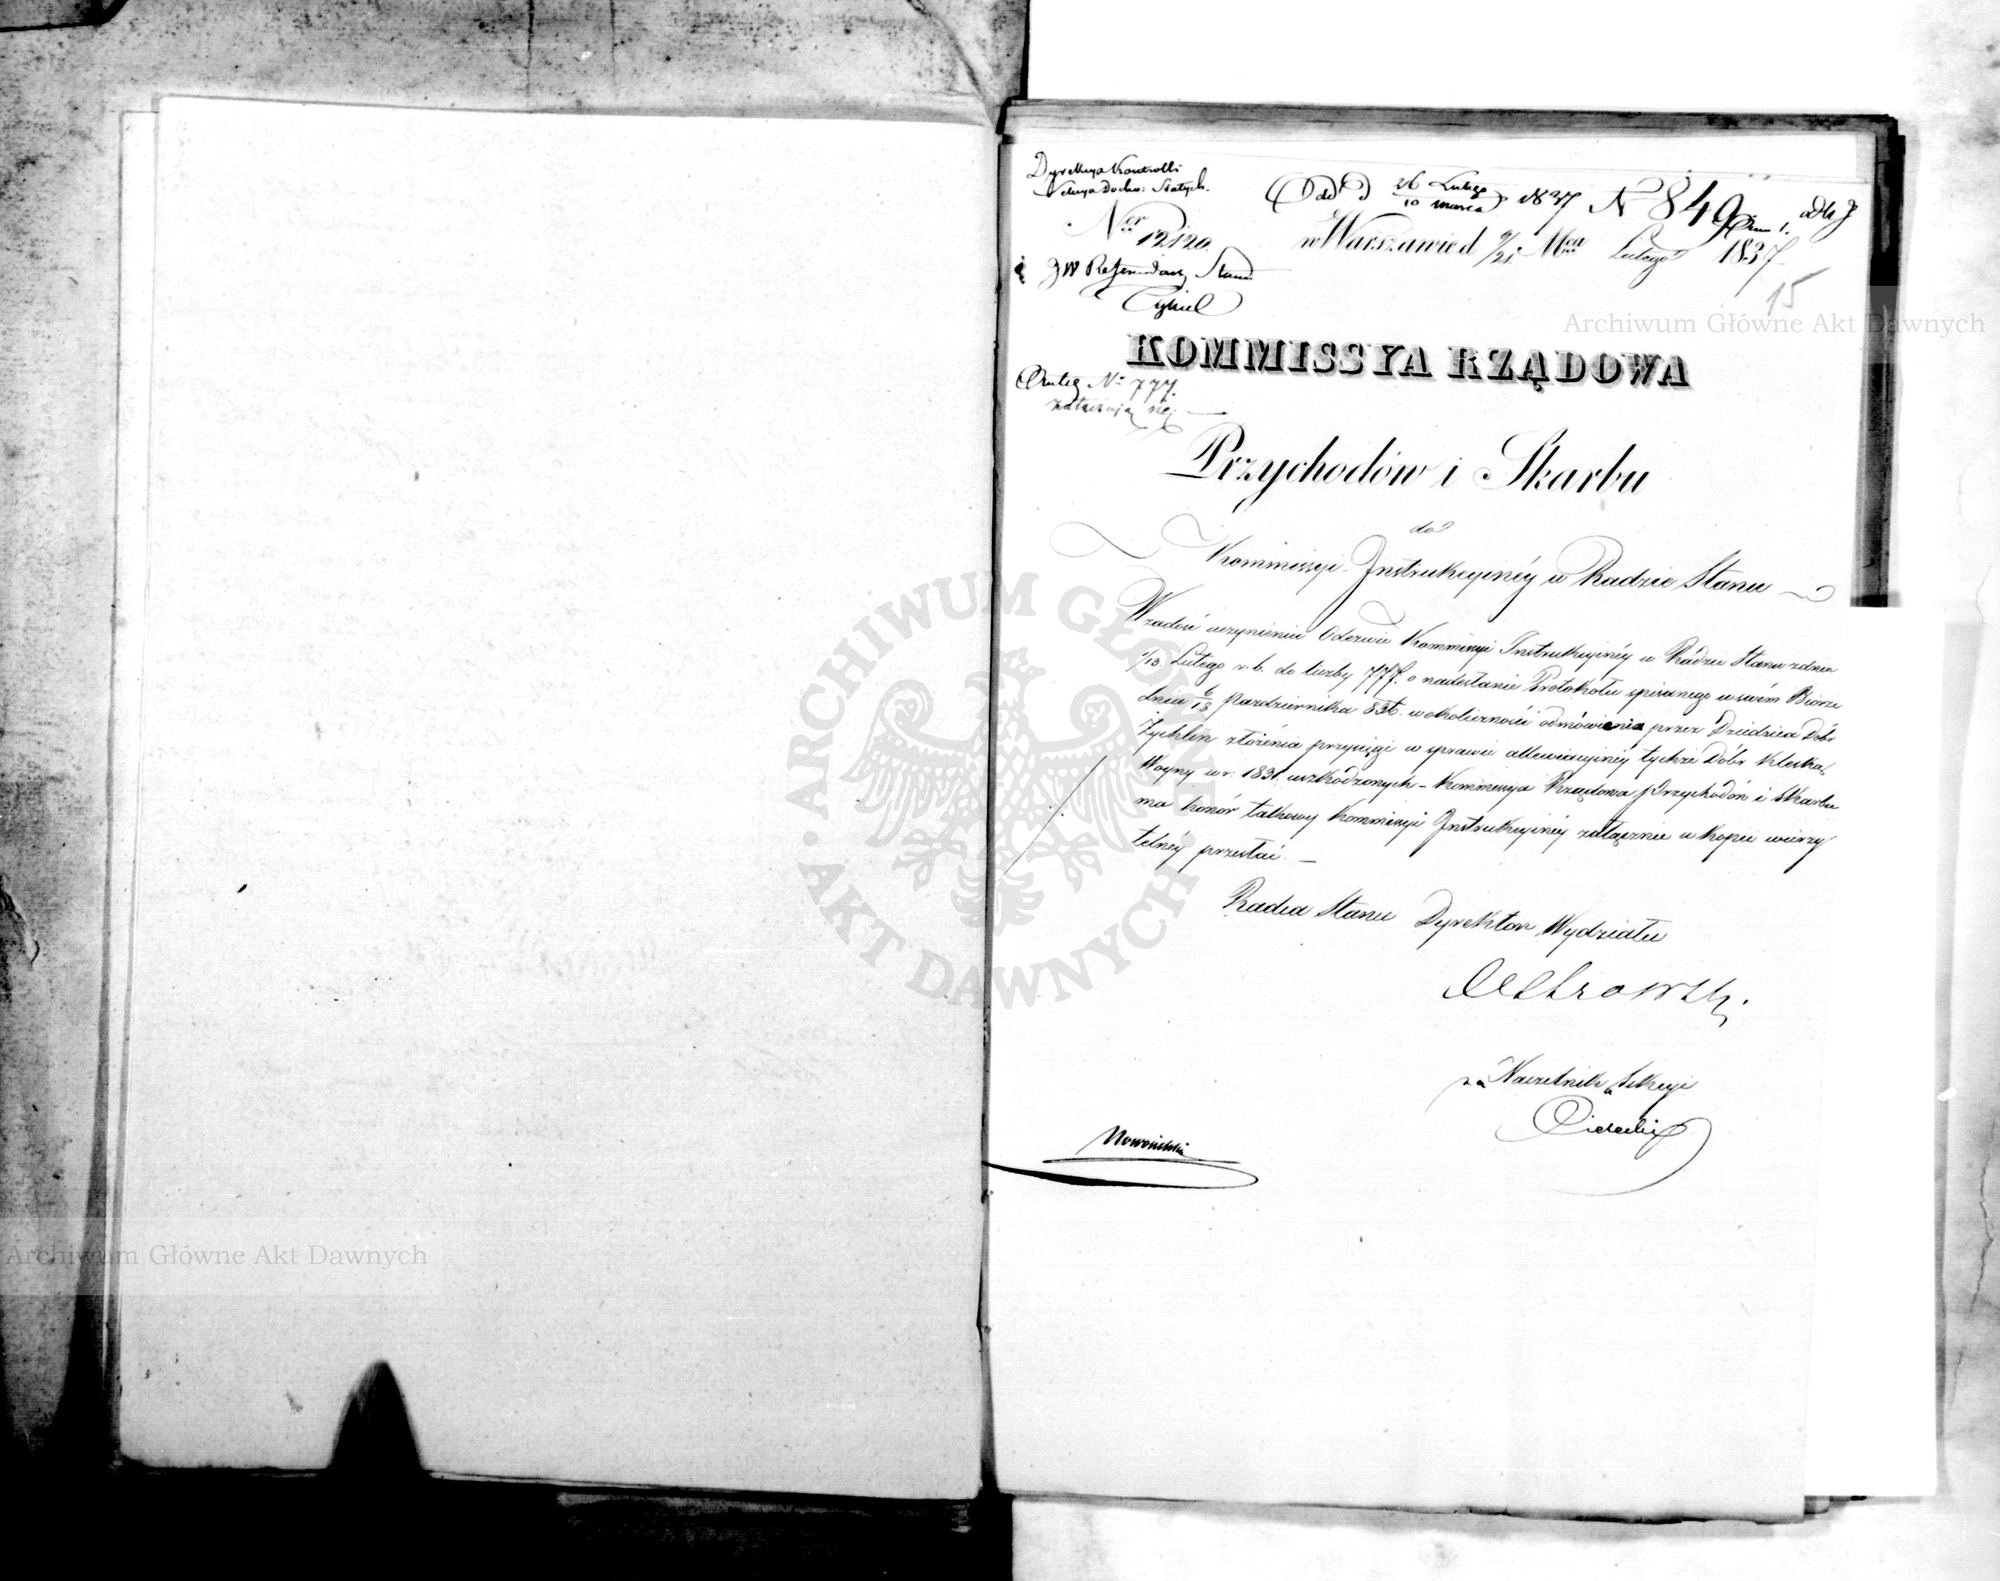 Dyrekcya Kontrolli
Sekcya Docho: Stałych.
Ner 12120.
Odd D 26 Lutego / 10 marca 1837 N 849
w Warszawie d 9/21 Mca Lutego 1837
15
JW Referendarz Stanu
KOMMISSYA RZĄDOWA
N: 777.
załączają się
Przychodów i Skarbu
do
Kommissyi Instrukcyinéy w Radzie Stanu
W zadość uczynieniu Odezwie Kommissyi Instrukcyinéy w Radzie Stanu z dnia
1/13 Lutego r. b. do liczby 777. o nadesłanie Protokołu spisanego w swém Biorze
dnia 6/18 Października 836. w okoliczności odmówienia przez Dziedzica Dóbr
Żychlin złożenia przysięgi w sprawie allewiacyjnéy tychże Dóbr klęską
Woyny w r. 1831. uszkodzonych – Kommissya Rządowa Przychodów i Skarbu
ma honor takowy Kommissyi Instrukcyinéy załącznie w kopii wierzy
telnéy przesłać. —
Radca Stanu Dyrektor Wydziału
za Naczelnik Sekcyi
Archiwum Główne Akt Dawnych
Archiwum Główne Akt Dawnych
ARCHIWUM GŁÓWNE
AKT DAWNYCH